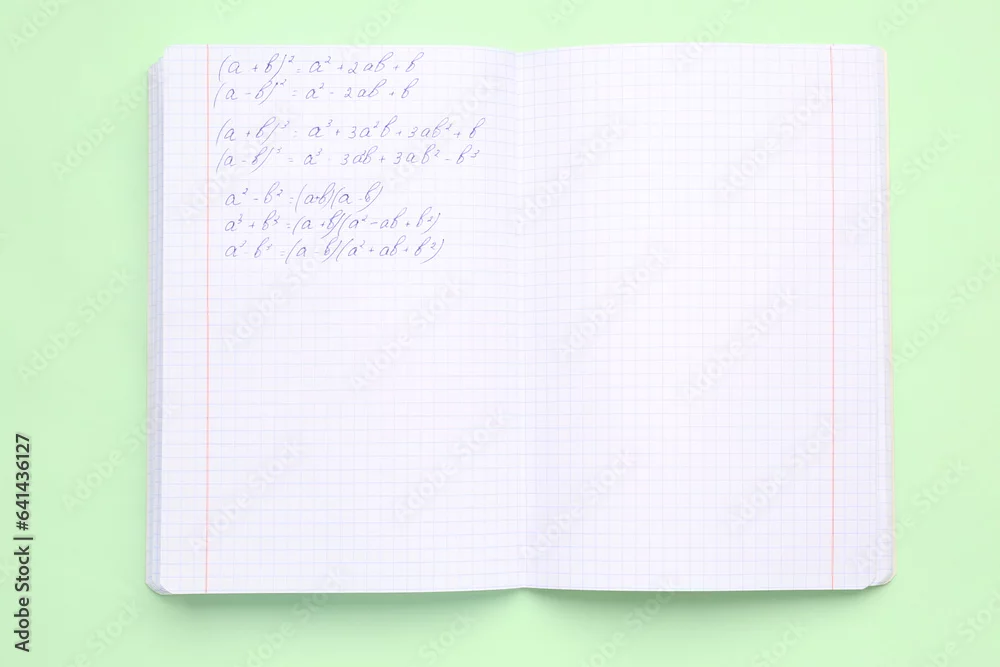 (a + b)² = a² + 2ab + b
(a - b)² = a² - 2ab + b
(a + b)³ = a³ + 3a²b + 3ab² + b
(a - b)³ = a³ - 3ab + 3ab² - b³
a² - b² = (a+b)(a - b)
a³ + b³ = (a + b)(a² - ab + b²)
a³ - b³ = (a - b)(a² + ab + b²)
Adobe Stock | #641436127